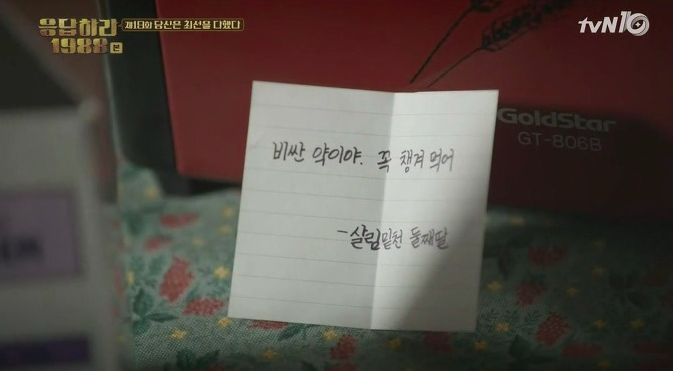 응답하라 제18화 당신은 최선을 다했다
1988 본
tvN10
GoldStar
GT-806B
비싼 약이야. 꼭 챙겨 먹어
-살림밑천 둘째딸